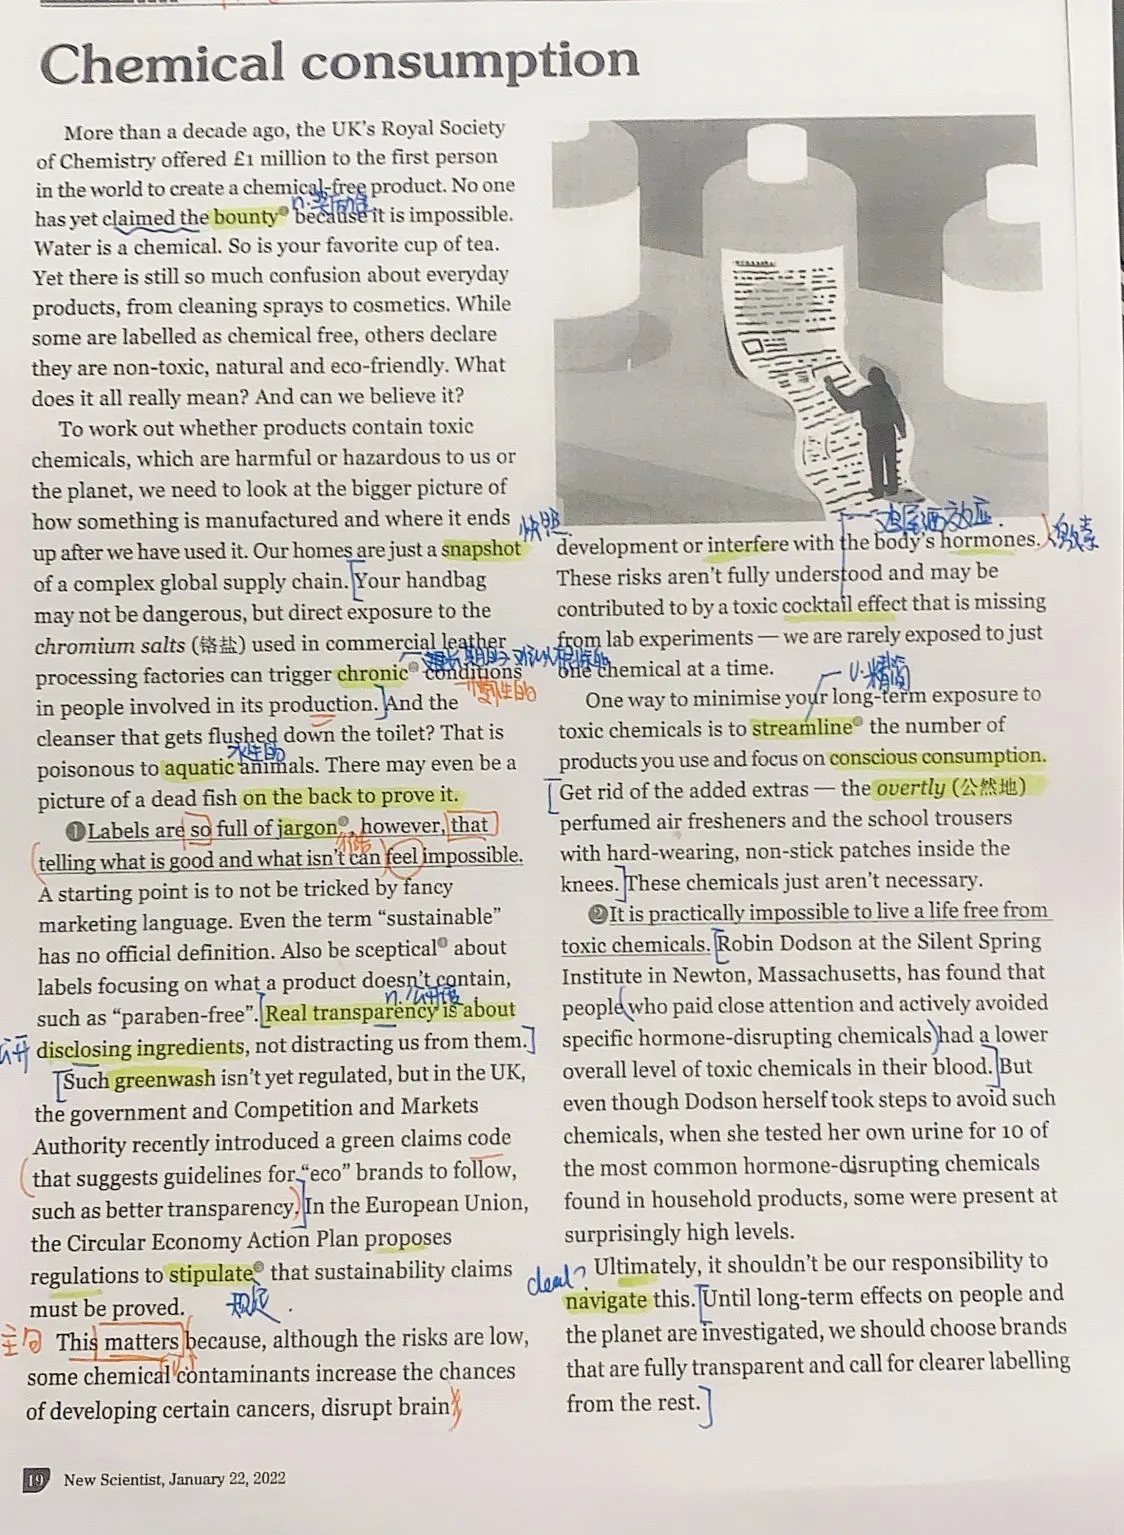 Chemical consumption
More than a decade ago, the UK's Royal Society
of Chemistry offered £1 million to the first person
in the world to create a chemical-free product. No one
has yet claimed the bounty because it is impossible.
Water is a chemical. So is your favorite cup of tea.
Yet there is still so much confusion about everyday
products, from cleaning sprays to cosmetics. While
some are labelled as chemical free, others declare
they are non-toxic, natural and eco-friendly. What
does it all really mean? And can we believe it?
To work out whether products contain toxic
chemicals, which are harmful or hazardous to us or
the planet, we need to look at the bigger picture of
how something is manufactured and where it ends
快照
up after we have used it. Our homes are just a snapshot
of a complex global supply chain. Your handbag
may not be dangerous, but direct exposure to the
chromium salts (铬盐) used in commercial leather
processing factories can trigger chronic conditions
慢性的
in people involved in its production. And the
cleanser that gets flushed down the toilet? That is
水生的
poisonous to aquatic animals. There may even be a
picture of a dead fish on the back to prove it.
❶Labels are so full of jargon, however, that
行话
telling what is good and what isn't can feel impossible.
A starting point is to not be tricked by fancy
marketing language. Even the term “sustainable”
has no official definition. Also be sceptical about
labels focusing on what a product doesn't contain,
such as “paraben-free”. Real transparency is about
公开
disclosing ingredients, not distracting us from them.
Such greenwash isn't yet regulated, but in the UK,
the government and Competition and Markets
Authority recently introduced a green claims code
that suggests guidelines for “eco” brands to follow,
such as better transparency. In the European Union,
the Circular Economy Action Plan proposes
regulations to stipulate that sustainability claims
must be proved.
规定.
主句
This matters because, although the risks are low,
some chemical contaminants increase the chances
of developing certain cancers, disrupt brain
鸡尾酒效应.
development or interfere with the body's hormones.
激素
These risks aren't fully understood and may be
contributed to by a toxic cocktail effect that is missing
from lab experiments — we are rarely exposed to just
one chemical at a time.
v.精简
One way to minimise your long-term exposure to
toxic chemicals is to streamline the number of
products you use and focus on conscious consumption.
Get rid of the added extras — the overtly (公然地)
perfumed air fresheners and the school trousers
with hard-wearing, non-stick patches inside the
knees. These chemicals just aren't necessary.
❷It is practically impossible to live a life free from
toxic chemicals. Robin Dodson at the Silent Spring
Institute in Newton, Massachusetts, has found that
people who paid close attention and actively avoided
specific hormone-disrupting chemicals had a lower
overall level of toxic chemicals in their blood. But
even though Dodson herself took steps to avoid such
chemicals, when she tested her own urine for 10 of
the most common hormone-disrupting chemicals
found in household products, some were present at
surprisingly high levels.
Ultimately, it shouldn't be our responsibility to
deal?
navigate this. Until long-term effects on people and
the planet are investigated, we should choose brands
that are fully transparent and call for clearer labelling
from the rest.
19 New Scientist, January 22, 2022